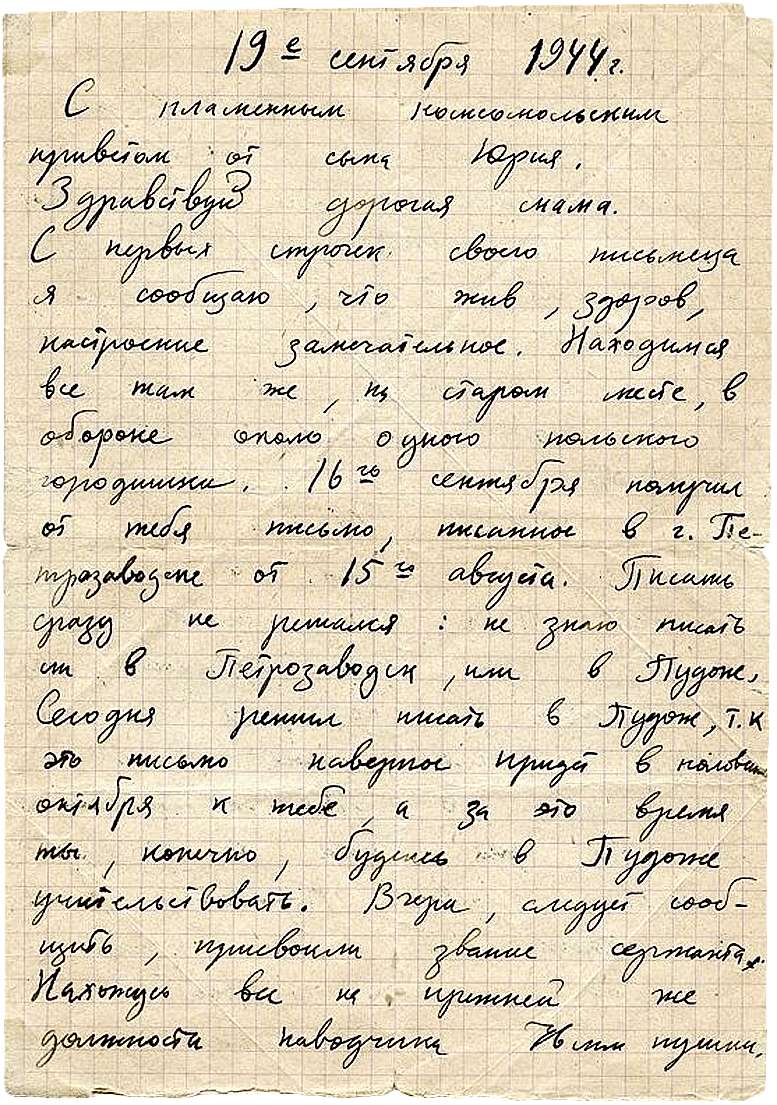 19е сентября 1944 г.
С пламенным комсомольским
приветом от сына Юрия.
Здравствуй дорогая мама.
С первых строчек своего письмеца
я сообщаю, что жив, здоров,
настроение замечательное. Находимся
все там же, на старом месте, в
обороне около одного польского
городишки. 16го сентября получил
от тебя письмо, писанное в г. Пе-
трозаводске от 15го августа. Писать
сразу не решался: не знаю писать
ли в Петрозаводск, или в Пудож.
Сегодня решил писать в Пудож, т.к
это письмо наверное придет в половине
октября к тебе, а за это время
ты, конечно, будешь в Пудоже
учительствовать. Вчера, следует сооб-
щить, присвоили звание сержанта.
Нахожусь все на прежней же
должности наводчика 76 мм пушки.